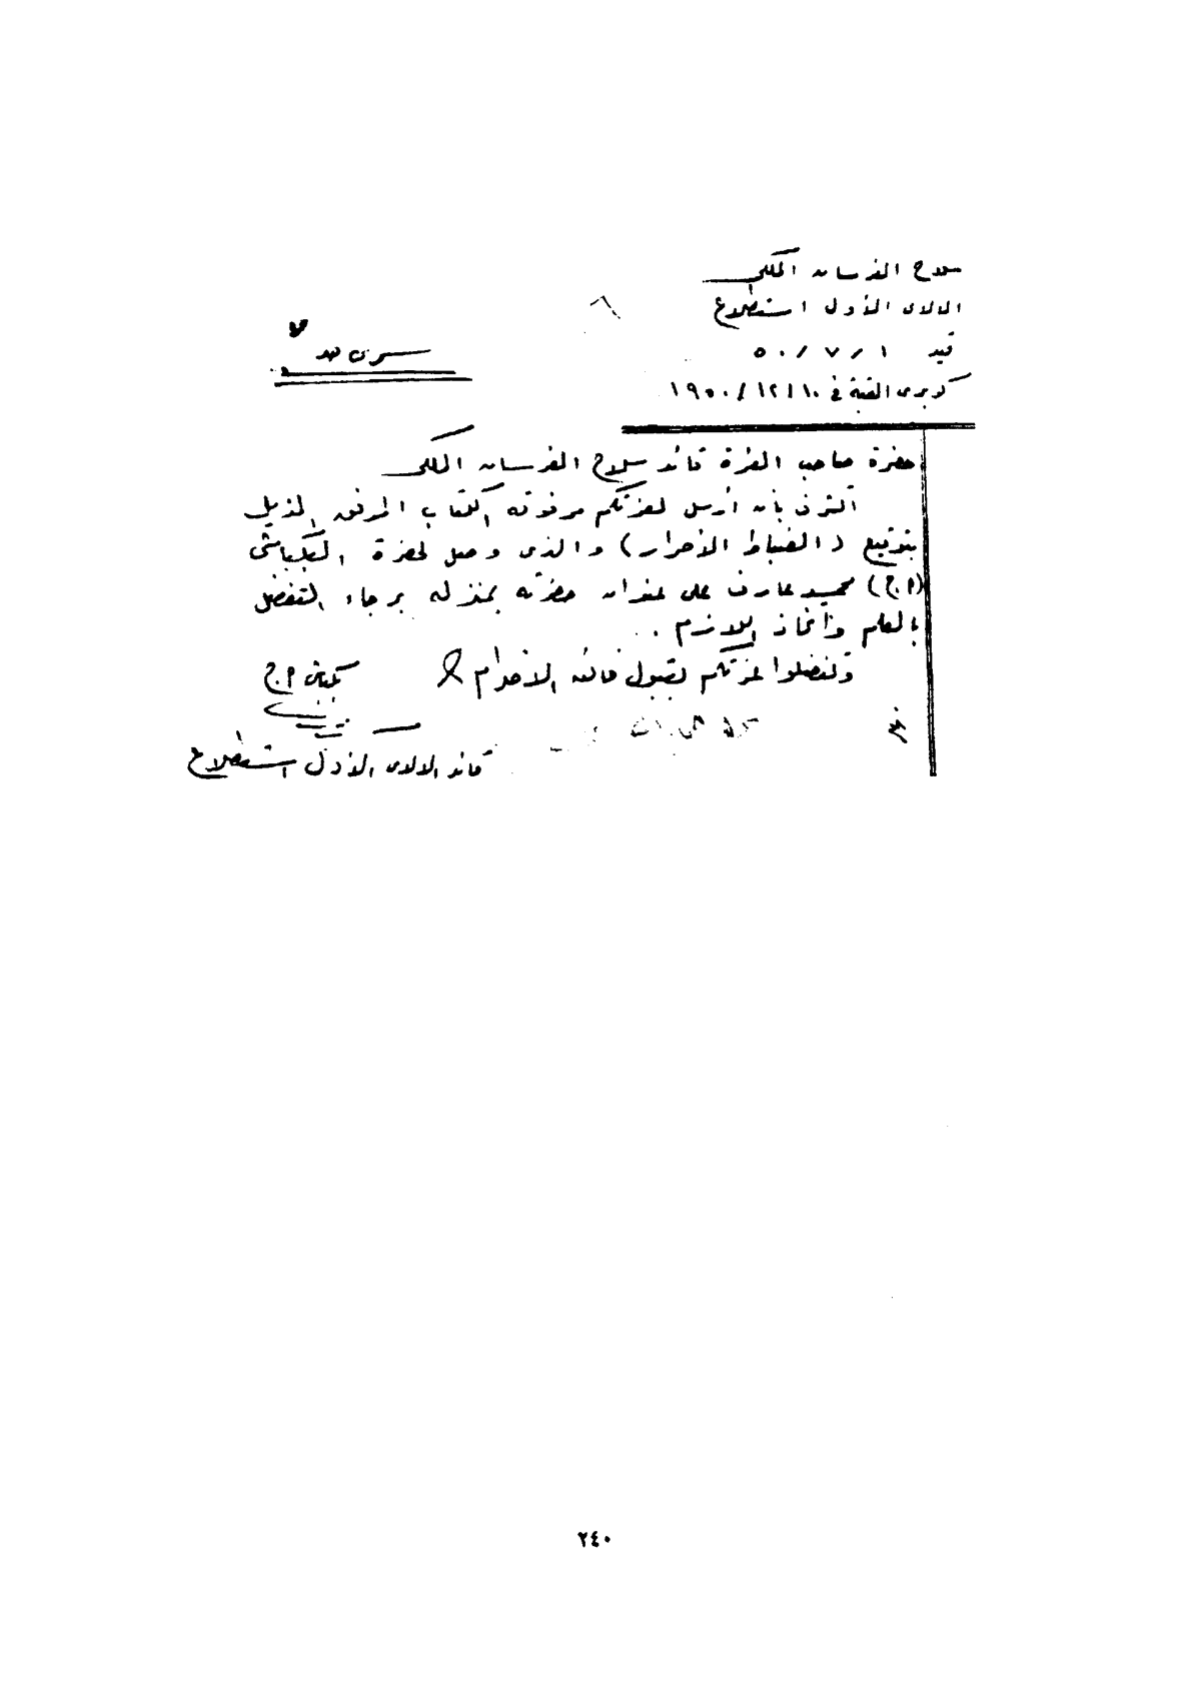 سلاح الفرسان الملكى
الالاى الأول استطلاع
قيد ١ / ٧ / ٥٠
كوبرى القبة فى ١٠ / ١٢ / ١٩٥٠
سرى
حضرة صاحب العزة قائد سلاح الفرسان الملكى
أتشرف بأن أرسل لعزتكم مرفوقه الكتاب المرفق المذيل
بتوقيع (الضباط الأحرار) والذى وصل لحضرة البكباشى
(أ.ح) عارف على عنوان حضرته بمنزله برجاء التفضل
بالعلم واتخاذ اللازم .
وتفضلوا عزتكم بقبول فائق الاحترام
بكباشى أ.ح
قائد الالاى الأول استطلاع
٢٤٠